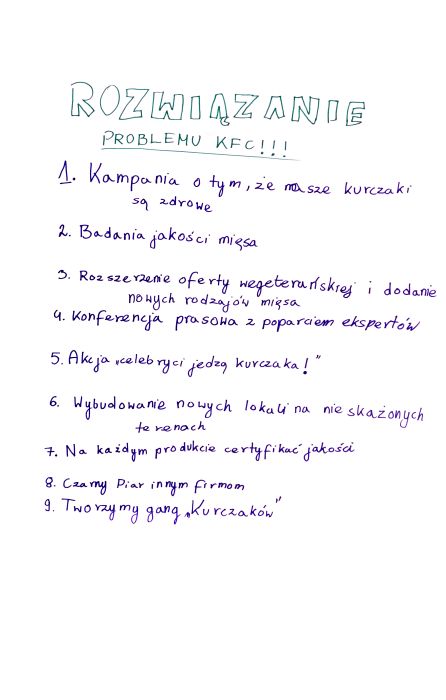 ROZWIĄZANIE
PROBLEMU KFC!!!
1. Kampania o tym, że nasze kurczaki
są zdrowe
2. Badania jakości mięsa
3. Rozszerzenie oferty wegeterańskiej i dodanie
nowych rodzajów mięsa
4. Konferencja prasowa z poparciem ekspertów
5. Akcja „celebryci jedzą kurczaka!"
6. Wybudowanie nowych lokali na nie skażonych
terenach
7. Na każdym produkcie certyfikać jakości
8. Czarny Piar innym firmom
9. Tworzymy gang „Kurczaków"